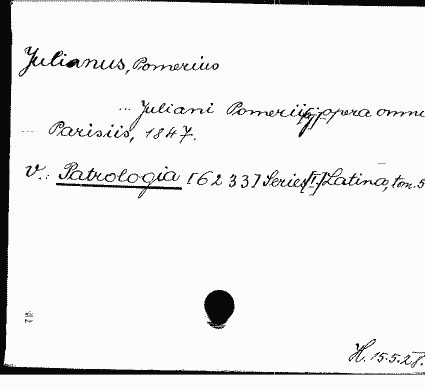 Julianus, Pomerius
... Juliani Pomerii opera omn
... Parisiis, 1847.
V.: Patrologia [6233] Series [I] Latina, tom. 5
H. 15.5.28.